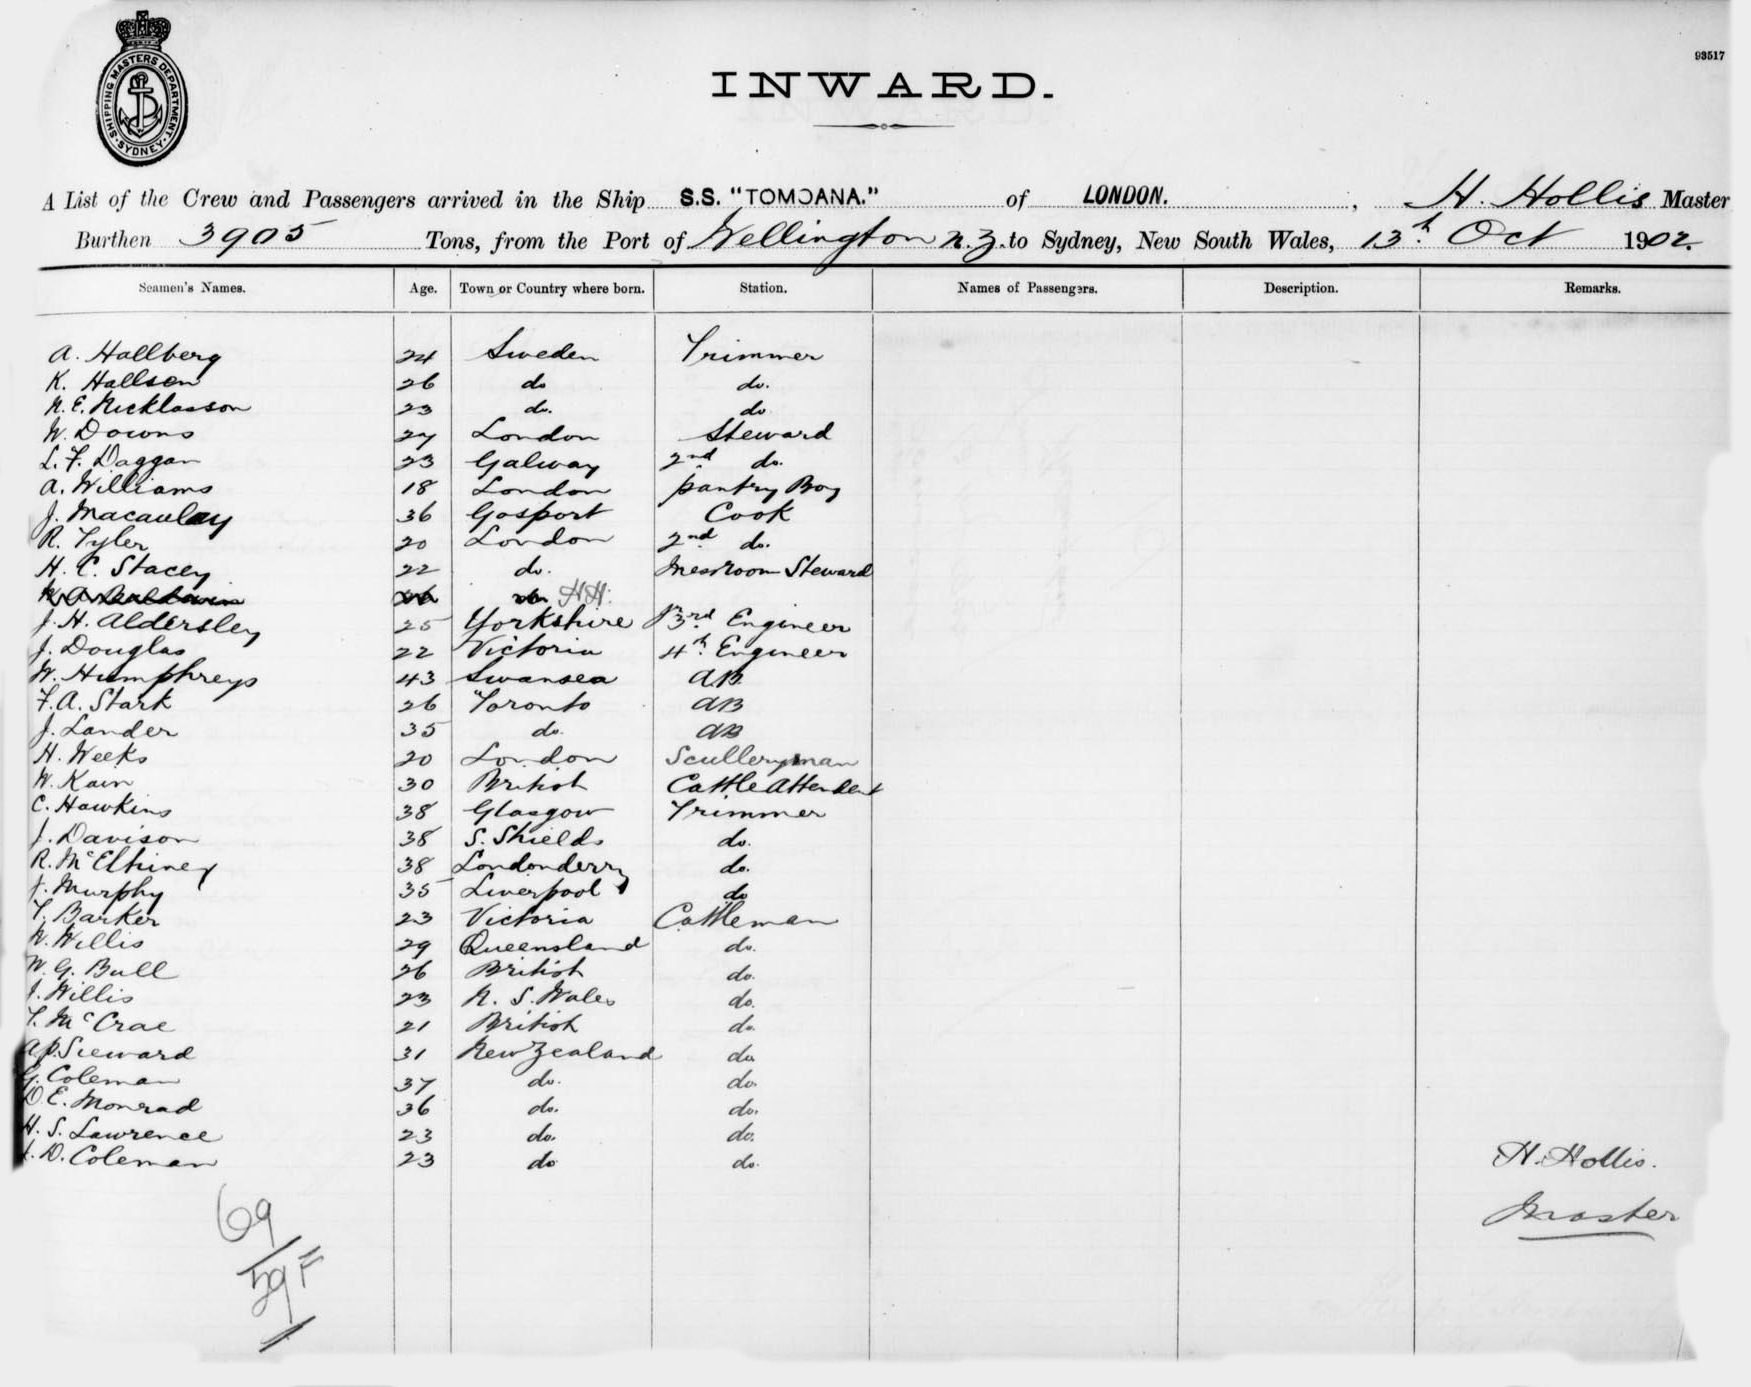 SHIPPING MASTERS DEPARTMENT. SYDNEY.
93517
INWARD.
A List of the Crew and Passengers arrived in the Ship S.S. "TOMOANA." of LONDON. , H. Hollis Master
Burthen 3905 Tons, from the Port of Wellington N.Z. to Sydney, New South Wales, 13th Oct 1902.
Seamen's Names. Age. Town or Country where born. Station. Names of Passengers. Description. Remarks.
A. Hallberg 24 Sweden Trimmer
K. Hallsen 26 do do.
N. E. Nicklasson 23 do. do
W. Downs 27 London Steward
L. F. Daggan 23 Galway 2nd do.
A. Williams 18 London pantry Boy
J. Macaulay 36 Gosport Cook
R. Tyler 20 London 2nd do.
H. C. Stacey 22 do. Messroom Steward
HH.
J. H. Aldersley 25 Yorkshire 3rd Engineer
J. Douglas 22 Victoria 4th Engineer
W. Humphreys 43 Swansea AB.
F. A. Stark 26 Toronto AB
J. Lander 35 do. AB
H. Weeks 20 London Sculleryman
W. Kain 30 British Cattle Attendent
C. Hawkins 38 Glasgow Trimmer
J. Davison 38 S. Shields do.
R. McElhiney 38 Londonderry do.
J. Murphy 35 Liverpool do
T. Barker 23 Victoria Cattleman
W. Willis 29 Queensland do.
W. G. Bull 26 British do.
J. Willis 23 N. S. Wales do.
T. McCrae 21 British do.
A. P. Sieward 31 New Zealand do.
G. Coleman 37 do. do.
D E. Monrad 36 do. do.
H. S. Lawrence 23 do. do.
D. Coleman 23 do do.
H. Hollis.
Master
69
59 F
1